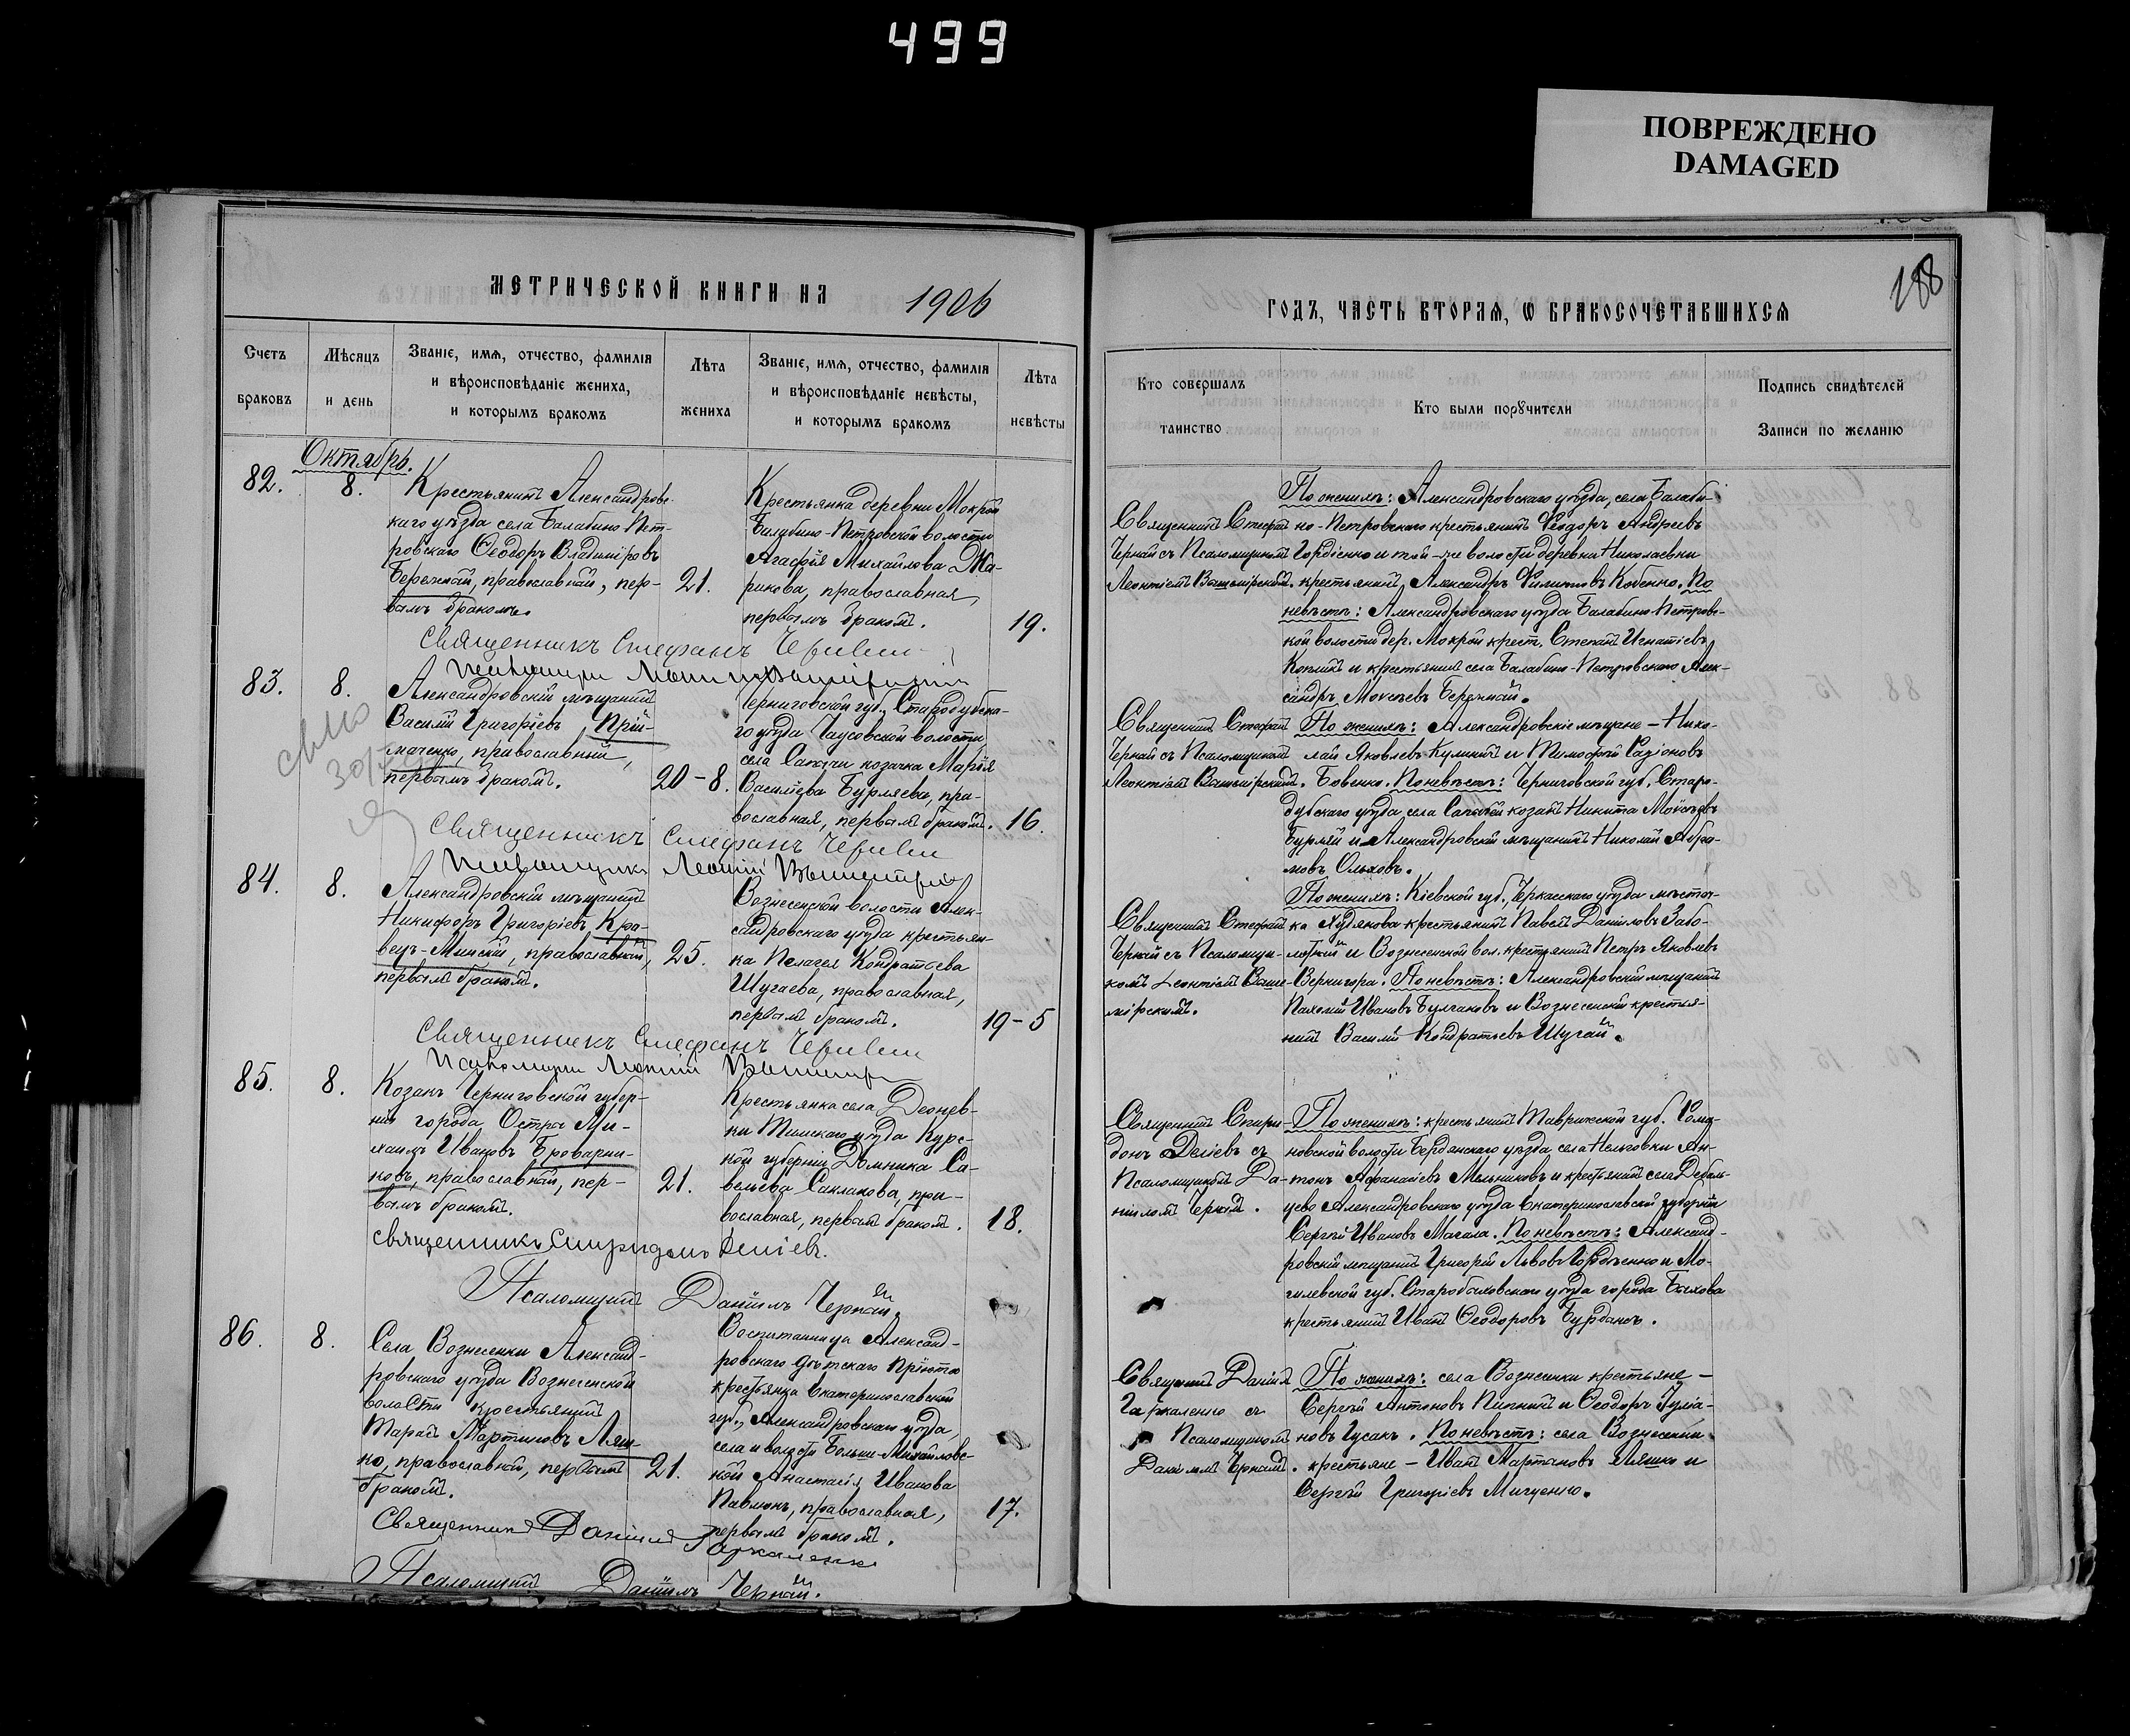 499
ПОВРЕЖДЕНО
DAMAGED
МЕТРИЧЕСКОЙ КНИГИ НА 1906
Счетъ браковъ
Мѣсяцъ и день
Званіе, имѧ, отчество, фамилія
и вѣроисповѣданіе жениха,
и которымъ бракомъ
Лѣта жениха
Званіе, имѧ, отчество, фамилія
и вѣроисповѣданіе невѣсты,
и которымъ бракомъ
Лѣта невѣсты
Октябрь.
82.
8.
Крестьянинъ Александровс-
каго уѣзда села Балабино Пет-
ровскаго Ѳеодоръ Владиміровъ
Бережный, православный, пер-
вымъ бракомъ.
21.
Крестьянка деревни Мокрой
Балабино-Петровской волости
Агафія Михайлова Жа-
рикова, православная,
первымъ бракомъ.
19.
Священникъ Стефанъ
83.
8.
Александровскій мѣщанинъ
Василій Григоріевъ Прій-
маченко, православный,
первымъ бракомъ.
20-8.
Черниговской губ., Стародубска-
го уѣзда волости,
села козачка Марія
Василіева Бурляева, пра-
вославная, первымъ бракомъ.
16.
Священникъ Стефанъ
84.
8.
Александровскій мѣщанинъ
Никифоръ Григоріевъ Кра-
вецъ-Минскій, православный,
первымъ бракомъ.
25.
Вознесенской волости Алек-
сандровскаго уѣзда крестьян-
ка Пелагея Кондратьева
Шугаева, православная,
первымъ бракомъ.
19-5
Священникъ Стефанъ
85.
8.
Козакъ Черниговской губер-
ніи города Остра Ми-
хаилъ Ивановъ Броварни-
ковъ, православный, пер-
вымъ бракомъ.
21.
Крестьянка села Леонев-
ки Тимскаго уѣзда Курс-
кой губерніи Домника Са-
вельева Саклакова, пра-
вославная, первымъ бракомъ.
18.
Священникъ Спиридонъ Деліевъ.
Псаломщикъ Даніилъ Черный.
86.
8.
Села Вознесенки Александ-
ровскаго уѣзда Вознесенской
волости крестьянинъ
Тарасъ Мартиновъ Ляш-
ко, православный, первымъ
бракомъ.
21.
Воспитанница Александ-
ровскаго дѣтскаго пріюта
крестьянка Екатеринославской
губ., Александровскаго уѣзда,
села и волости Больше-Михайловс-
кой Анастасія Иванова
Павлюкъ, православная,
первымъ бракомъ.
17.
Священникъ Даніилъ Гаркаленко
Псаломщикъ Даніилъ Черный.
188
ГОДЪ, ЧАСТЬ ВТОРАѦ, Ѡ БРАКОСОЧЕТАВШИХСѦ
Кто совершалъ таинство
Кто были порꙋчители
Подпись свидѣтелей
Записи по желанію
Священникъ Стефанъ
Черный съ Псаломщикомъ
Леонтіемъ
По женихѣ: Александровскаго уѣзда, села Балаби-
но-Петровскаго крестьянинъ Ѳеодоръ Андреевъ
Гордіенко и той-же волости деревни Николаевки
крестьянинъ Александръ Филиповъ Кобенко. По
невѣстѣ: Александровскаго уѣзда Балабино-Петровс-
кой волости дер. Мокрой крест. Степанъ Игнатіевъ
и крестьянинъ села Балабино-Петровскаго Алек-
сандръ Моисеевъ Бережный.
Священникъ Стефанъ
Черный съ Псаломщикомъ
Леонтіемъ
По женихѣ: Александровскіе мѣщане – Нико-
лай Яковлевъ Куликъ и Тимофей Родіоновъ
Бовенко. По невѣстѣ: Черниговской губ. Старо-
дубскаго уѣзда села козакъ Никита Моисеевъ
Бурляй и Александровскій мѣщанинъ Николай Абра-
мовъ Ольховъ.
Священникъ Стефанъ
Черный съ Псаломщи-
комъ Леонтіемъ
По женихѣ: Кіевской губ., Черкасскаго уѣзда мѣстеч-
ка Худякова крестьянинъ Павелъ Даниловъ Забо-
лотный и Вознесенской вол. крестьянинъ Петръ Яковлевъ
Вернигора. По невѣстѣ: Александровскій мѣщанинъ
Ивановъ Булгаковъ и Вознесенскій крестья-
нинъ Василій Кондратьевъ Шугай.
Священникъ Спири-
донъ Деліевъ съ
Псаломщикомъ Да-
ніиломъ Чернымъ.
По женихѣ: крестьянинъ Таврической губ. Рома-
новской волости Бердянскаго уѣзда села Нельговки Ан-
тонъ Афанасіевъ Мельниковъ и крестьянинъ села Дебаль-
цево Александровскаго уѣзда Екатеринославской губерніи
Сергѣй Ивановъ Магала. По невѣстѣ: Александ-
ровскій мѣщанинъ Григорій Львовъ Гордѣенко и Мо-
гилевской губ. Старобыховскаго уѣзда города Быхова
крестьянинъ Иванъ Ѳеодоровъ Бурдакъ.
Священникъ Даніилъ
Гаркаленко съ
Псаломщикомъ
Даніиломъ Чернымъ.
По женихѣ: села Вознесенки крестьяне –
Сергѣй Антоновъ и Ѳеодоръ Іуліа-
новъ Гусакъ. По невѣстѣ: села Вознесенки
крестьяне – Иванъ Мартиновъ Ляшко и
Сергѣй Григоріевъ Мищенко.